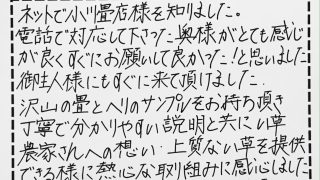 ネットで小川畳店様を知りました。
電話で対応して下さった奥様がとても感じ
が良くすぐにお願いして良かった!と思いました
御主人様にもすぐに来て頂けました。
沢山の畳とヘリのサンプルをお持ち頂き
丁寧で分かりやすい説明と共にい草
農家さんへの想い・上質ない草を提供
できる様に熱心な取り組みに感心しました